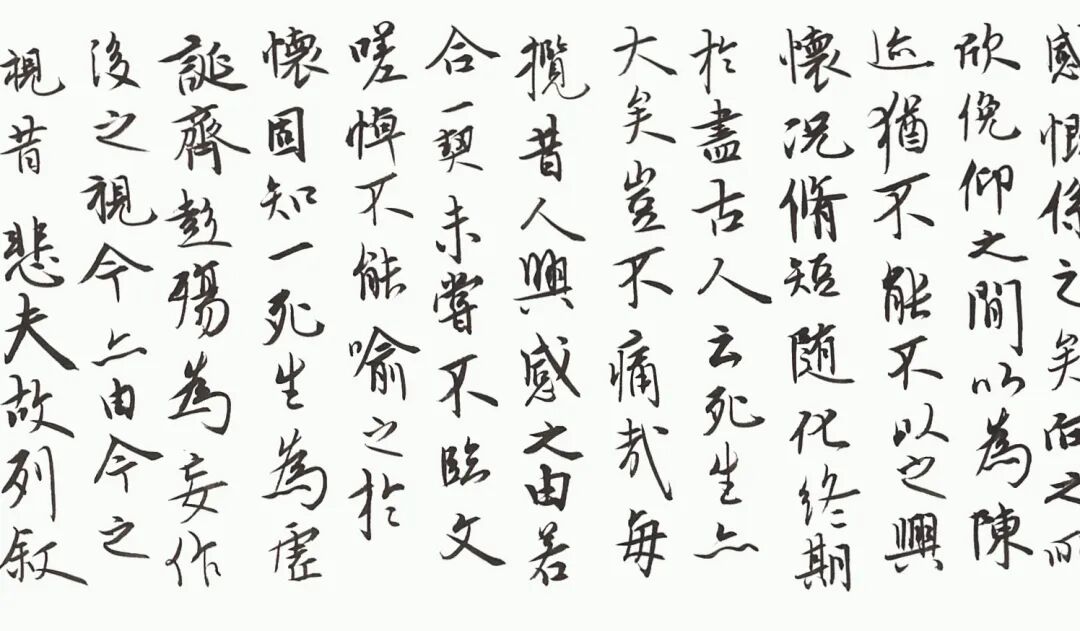 感慨係之矣向之所
欣俛仰之間以為陳
迹猶不能不以之興
懷況脩短隨化終期
於盡古人云死生亦
大矣豈不痛哉每
攬昔人興感之由若
合一契未嘗不臨文
嗟悼不能喻之於
懷固知一死生為虛
誕齊彭殤為妄作
後之視今亦由今之
視昔悲夫故列敘